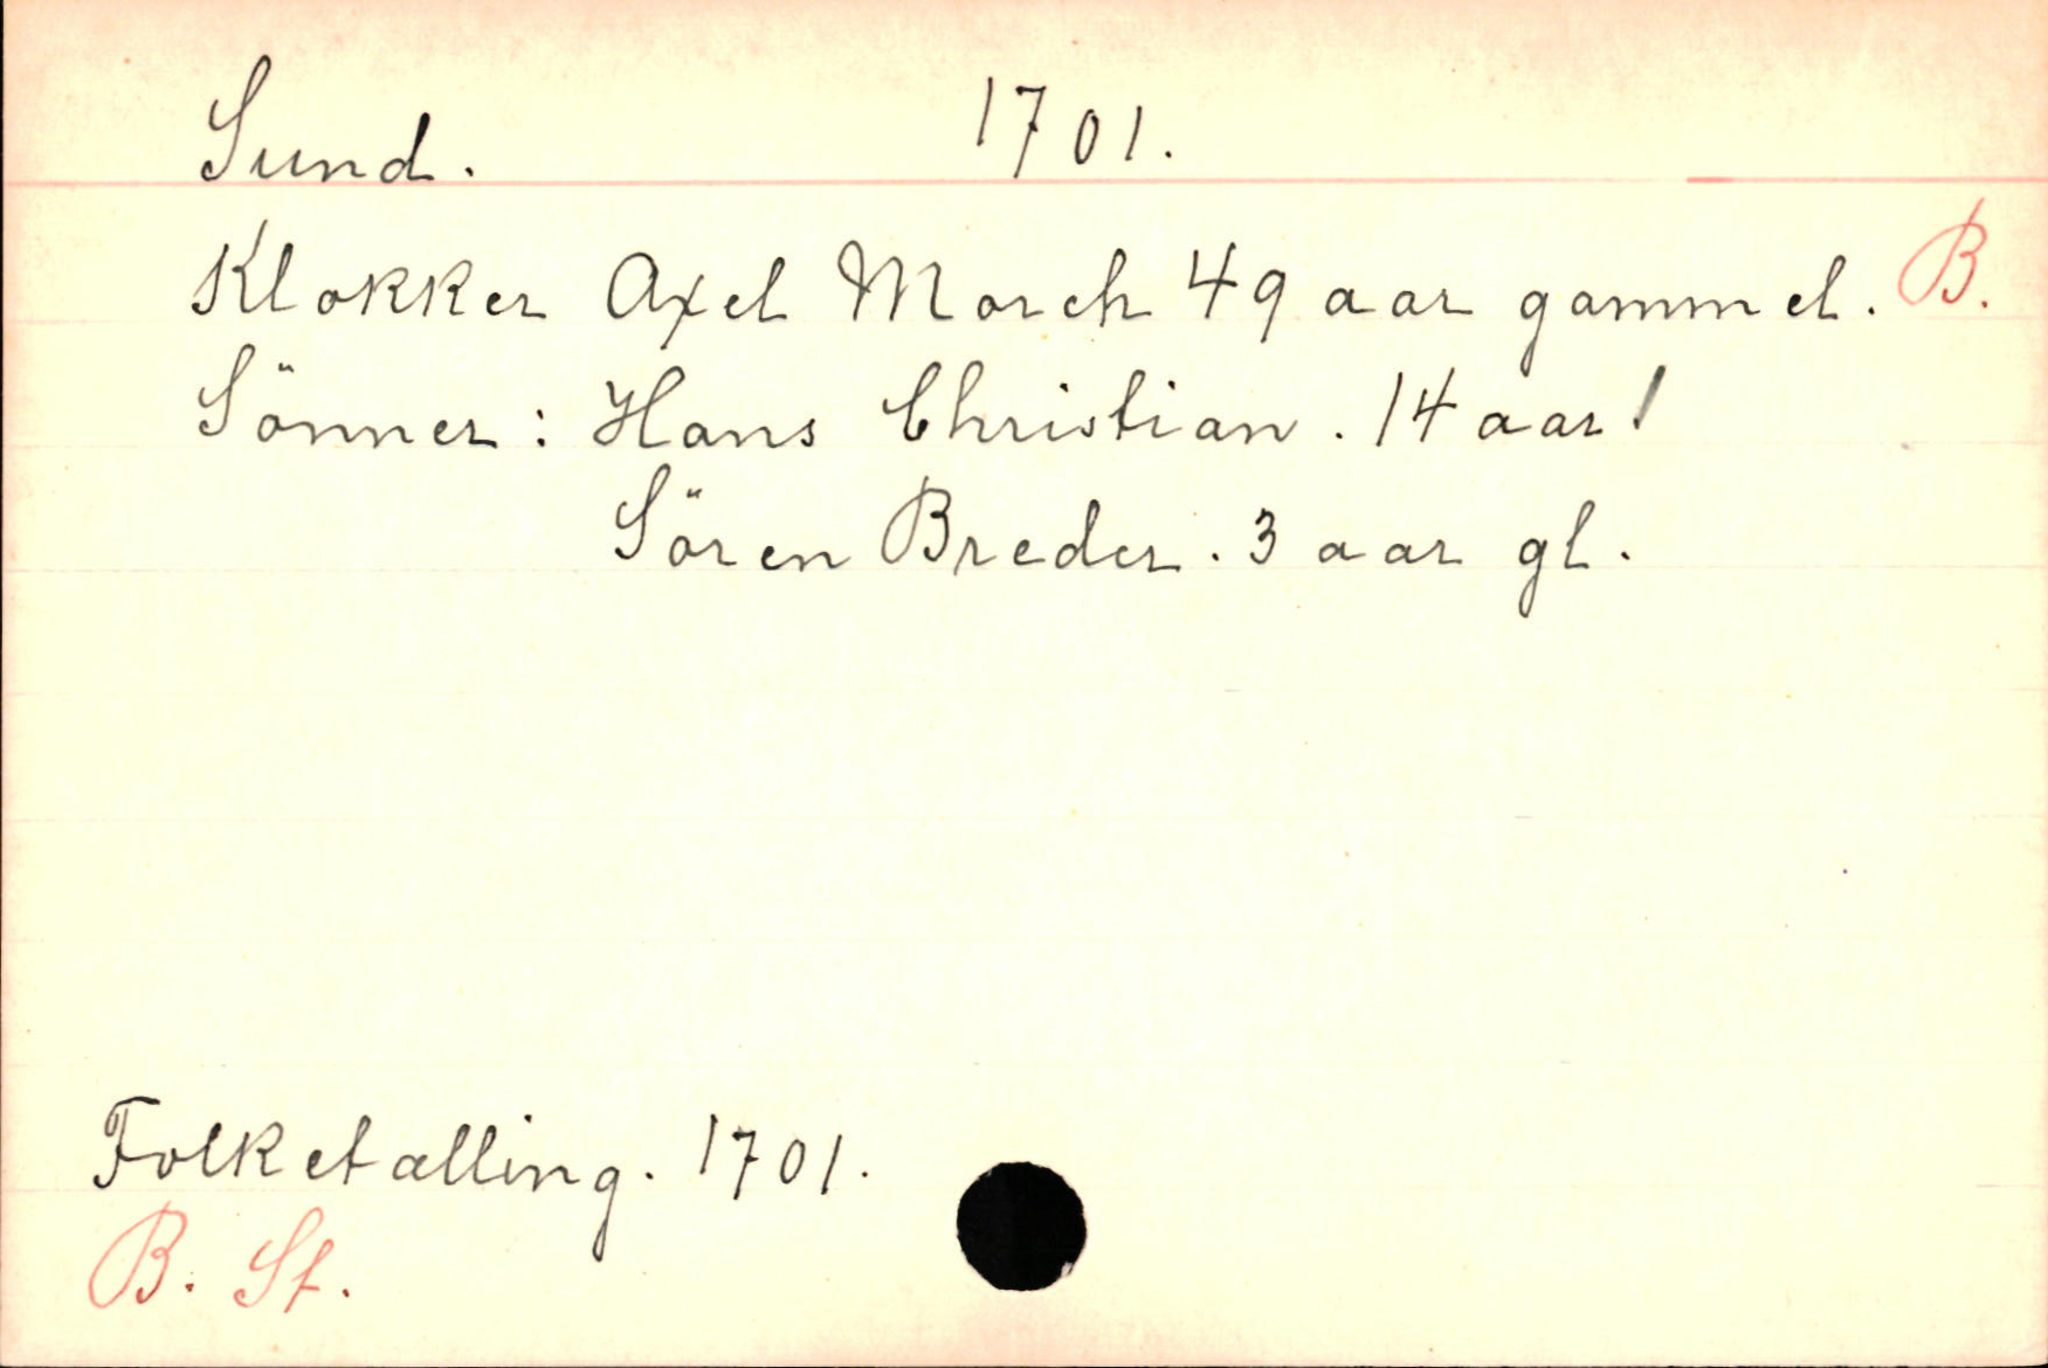 Sund. 1701.
Klokker Axel Morch 49 aar gammel. B.
Sönner: Hans Christian. 14 aar!
Sören Breder. 3 aar gl.
Folketælling. 1701.
B. St.